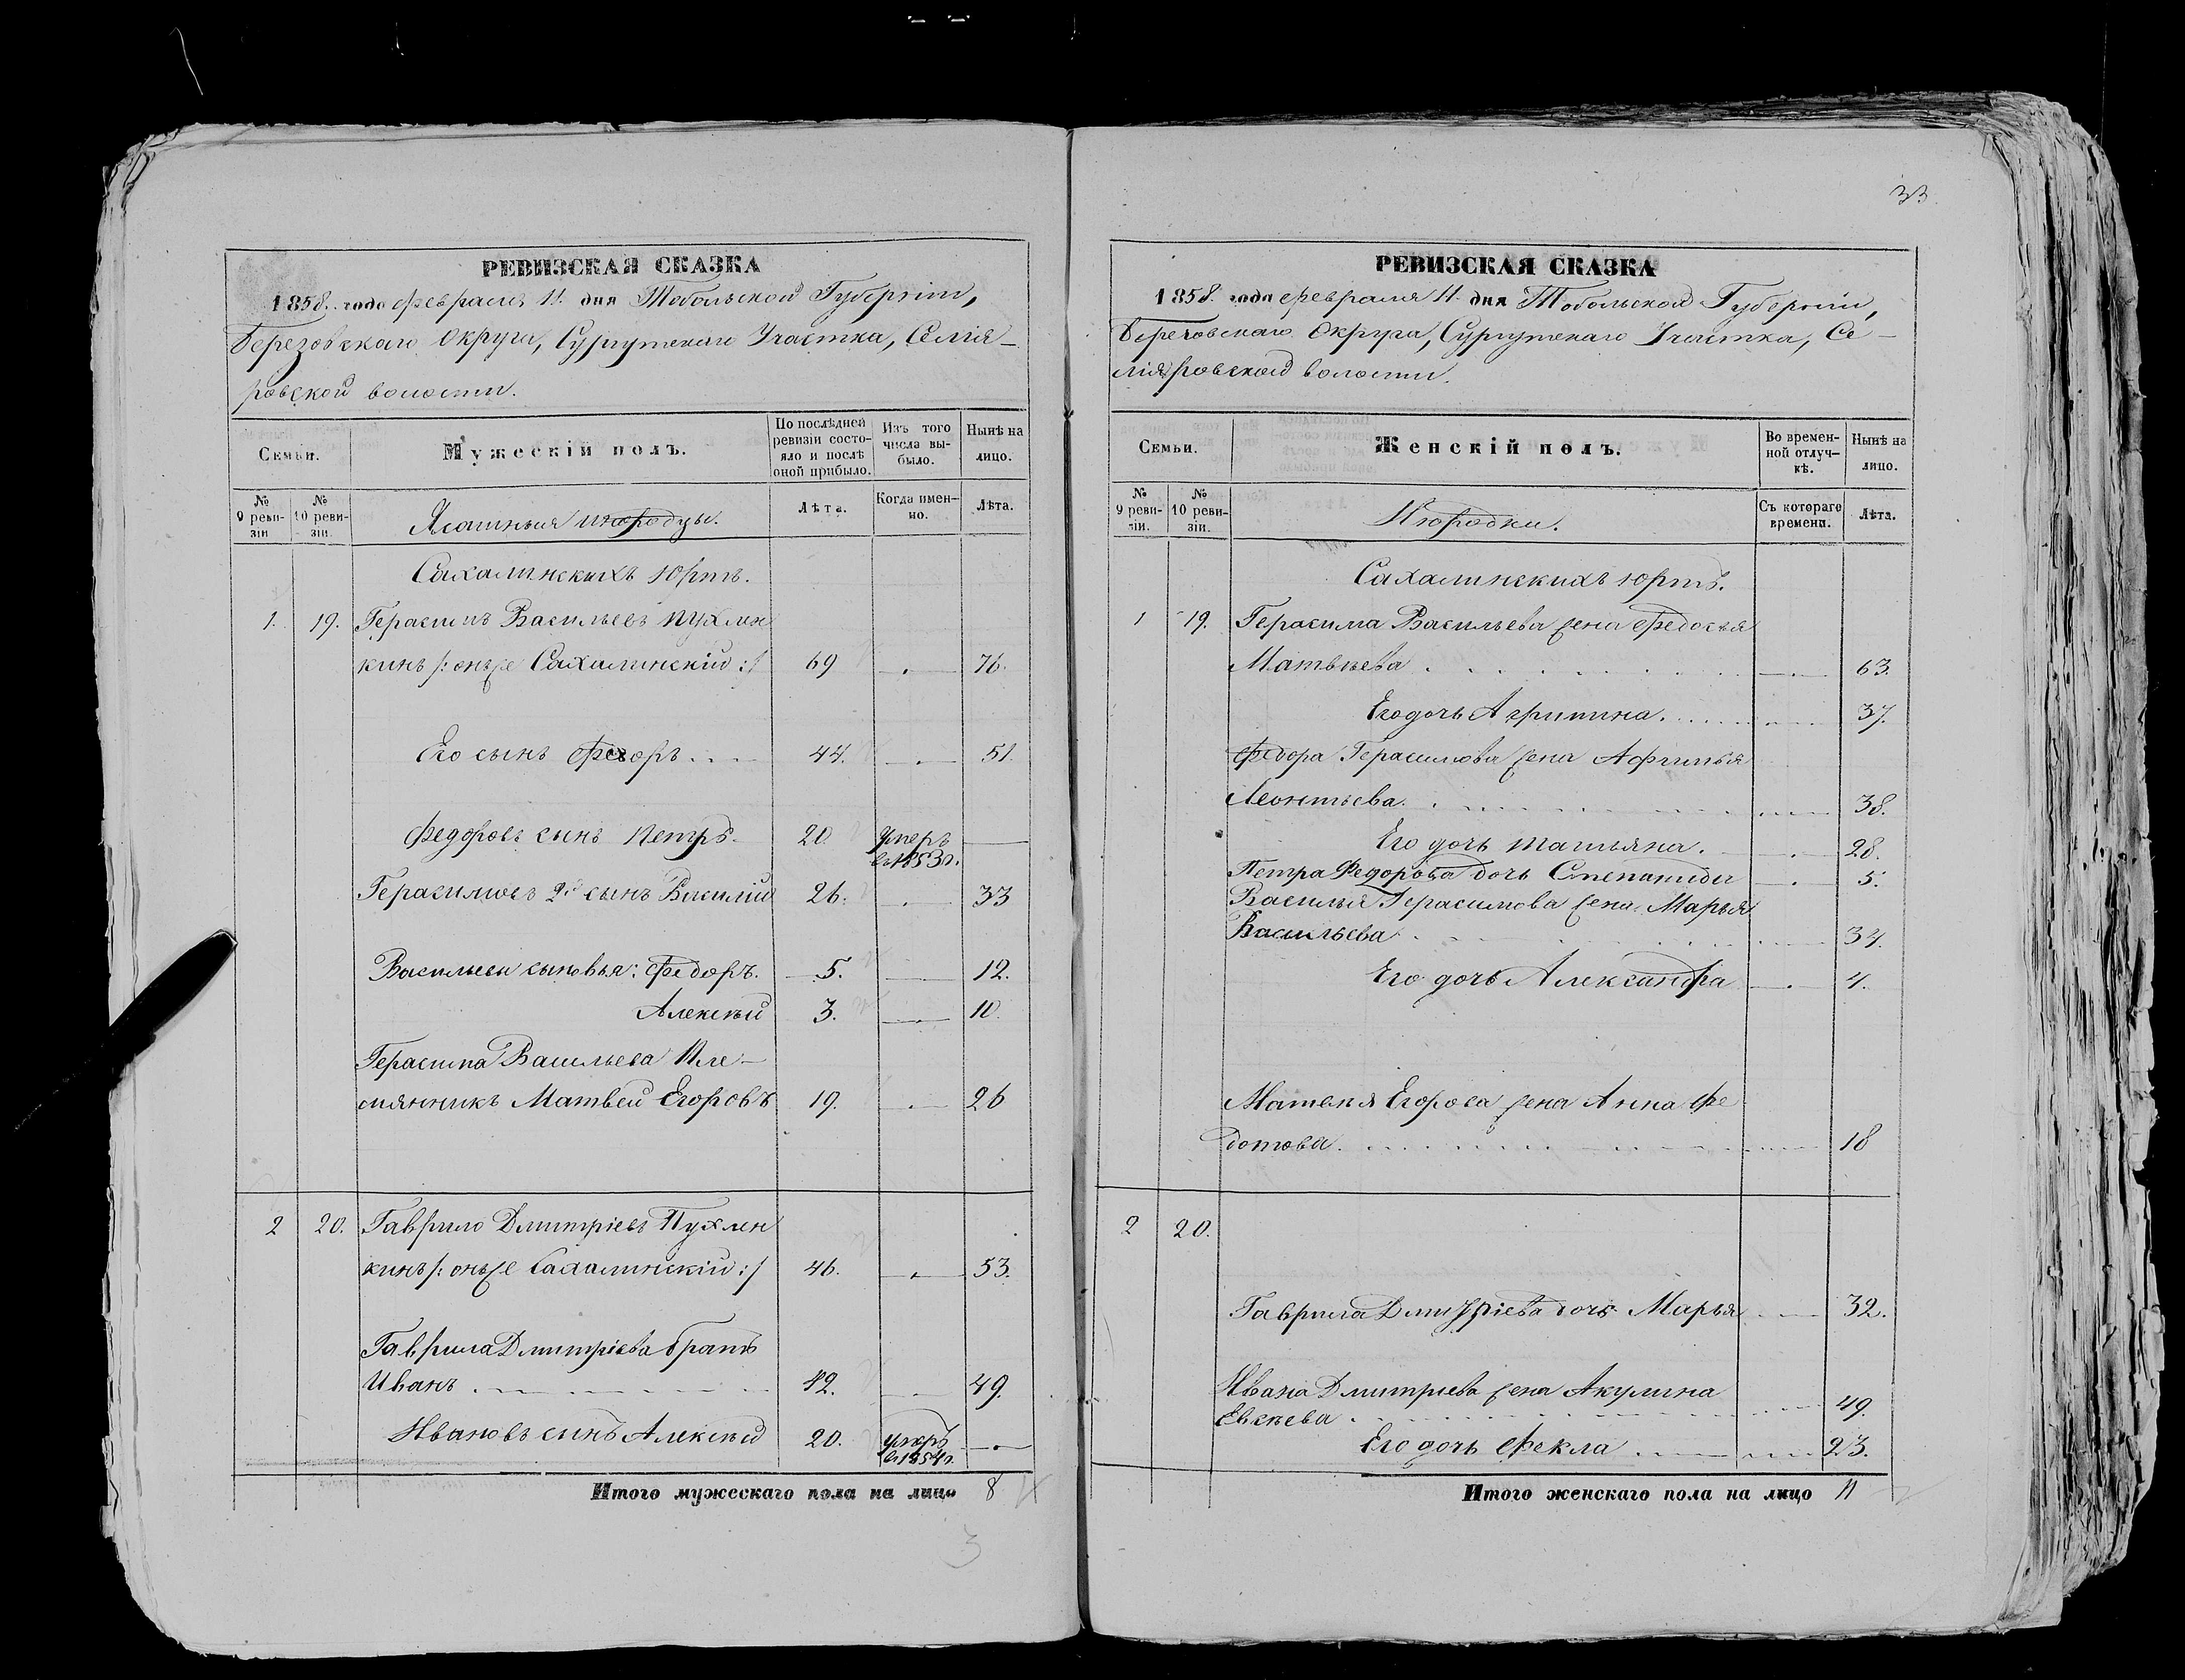 33
РЕВИЗСКАЯ СКАЗКА
1858. года февраля 11. дня Тобольской Губерніи,
Березовскаго Округа, Сургутскаго Участка, Селія-
ровской волости.
Семьи.
Мужескій полъ.
По послѣдней ревизіи состо-яло и послѣ оной прибыло.
Изъ того числа вы-было.
Нынѣ на лицо.
№ 9 реви-зіи
№ 10 реви-зіи.
Ясашныя инородцы.
Лѣта.
Когда имен-но.
Лѣта.
Сахалинскихъ юртъ.
1. 19. Герасимъ Васильевъ Пухлен
кинъ /: онъже Сахалинскій :/ 69 76.
Его сынъ Федоръ 44. 51.
Федоровъ сынъ Петръ 20. умеръ въ 1853 г.
Герасимовъ 2й сынъ Василій 26. 33
Васильевы сыновья: Федоръ. 5. 12.
Алексѣй 3. 10.
Герасима Васильева Пле-
мянникъ Матвей Егоровъ 19. 26
2 20. Гаврило Дмитріевъ Пухлен
кинъ /: онъже Сахалинскій :/ 46. 53.
Гаврила Дмитріева братъ
Иванъ 42. 49.
Ивановъ сынъ Алексѣй 20. умеръ въ 1854 г.
Итого мужескаго пола на лицо 8
3
РЕВИЗСКАЯ СКАЗКА
1858. года февраля 11. дня Тобольской Губерніи,
Березовскаго Округа, Сургутскаго Участка, Се-
ліяровской волости.
Семьи.
Женскій полъ.
Во времен-ной отлуч-кѣ.
Нынѣ на лицо.
№ 9 реви-зіи.
№ 10 реви-зіи.
Инородки.
Съ котораго времени.
Лѣта.
Сахалинскихъ юртъ.
1 19. Герасима Васильева жена Федосья
Матвѣева 63.
Его дочь Агрипина. 37.
Федора Герасимова жена Афимья
Леонтьева. 38.
Его дочь Татьяна. 28.
Петра Федорова дочь Степанида 5.
Василья Герасимова жена Марья
Васильева 34.
Его дочь Александра 4.
Матвея Егорова жена Анна Фе
дотова. 18
2 20.
Гаврила Дмитріева дочь Марья 32.
Ивана Дмитріева жена Акулина
Евсѣева 49.
Его дочь Фекла 23.
Итого женскаго пола на лицо 11